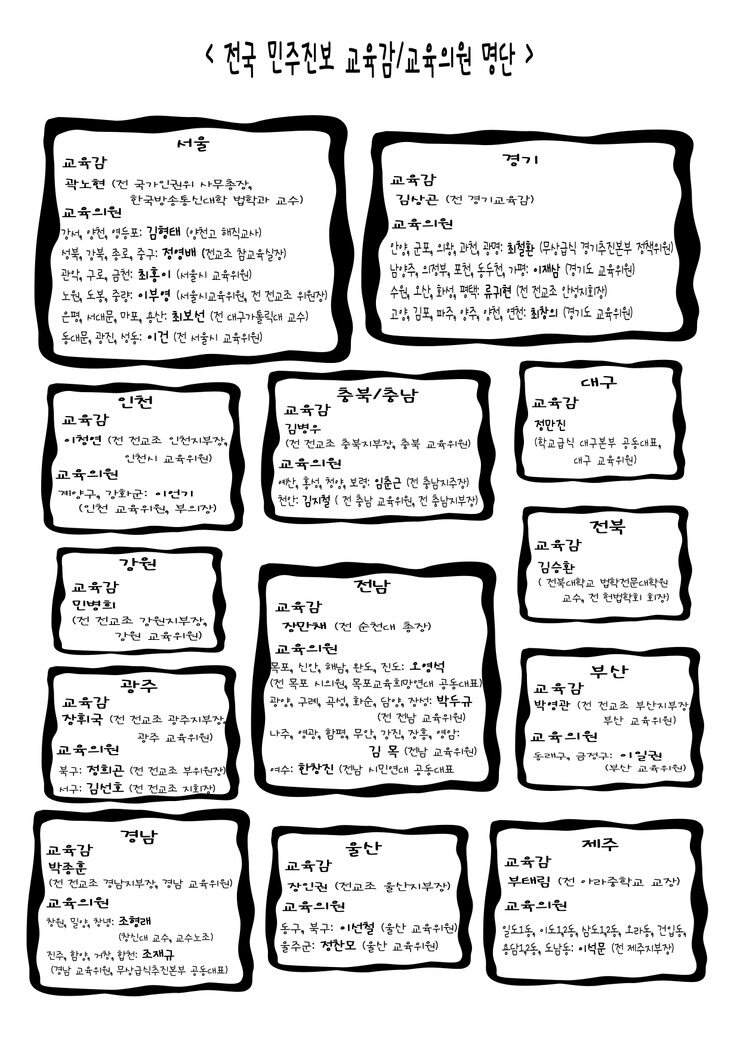 < 전국 민주진보 교육감/교육의원 명단 >
서울
교육감
곽노현 (전 국가인권위 사무총장,
한국방송통신대학 법학과 교수)
교육의원
강서, 양천, 영등포: 김형태 (양천고 해직교사)
성북, 강북, 종로, 중구: 정영배 (전교조 참교육실장)
관악, 구로, 금천: 최홍이 (서울시 교육위원)
노원, 도봉, 중랑: 이부영 (서울시교육위원, 전 전교조 위원장)
은평, 서대문, 마포, 용산: 최보선 (전 대구가톨릭대 교수)
동대문, 광진, 성동: 이건 (전 서울시 교육위원)
경기
교육감
김상곤 (전 경기교육감)
교육의원
안양, 군포, 의왕, 과천, 광명: 최철환 (무상급식 경기추진본부 정책위원)
남양주, 의정부, 포천, 동두천, 가평: 이재삼 (경기도 교육위원)
수원, 오산, 화성, 평택: 류귀현 (전 전교조 안성지회장)
고양, 김포, 파주, 양주, 양천, 연천: 최창의 (경기도 교육위원)
인천
교육감
이청연 (전 전교조 인천지부장,
인천시 교육위원)
교육의원
계양구, 강화군: 이언기
(인천 교육위원, 부의장)
충북/충남
교육감
김병우
(전 전교조 충북지부장, 충북 교육위원)
교육의원
예산, 홍성, 청양, 보령: 임춘근 (전 충남지주장)
천안: 김지철 ( 전 충남 교육위원, 전 충남지부장)
대구
교육감
정만진
(학교급식 대구본부 공동대표,
대구 교육위원)
전북
교육감
김승환
( 전북대학교 법학전문대학원
교수, 전 헌법학회 회장)
강원
교육감
민병희
(전 전교조 강원지부장,
강원 교육위원)
전남
교육감
장만채 (전 순천대 총장)
교육의원
목포, 신안, 해남, 완도, 진도: 오영석
(전 목포 시의원, 목포교육희망연대 공동대표)
광양, 구례, 곡성, 화순, 담양, 장성: 박두규
(전 전남 교육위원)
나주, 영광, 함평, 무안, 강진, 장흥, 영암:
김 목 (전남 교육위원)
여수: 한창진 (전남 시민연대 공동대표
부산
교육감
박영관 (전 전교조 부산지부장,
부산 교육위원)
교육의원
동래구, 금정구: 이일권
(부산 교육위원)
광주
교육감
장휘국 (전 전교조 광주지부장,
광주 교육위원)
교육의원
북구: 정희곤 (전 전교조 부위원장)
서구: 김선호 (전 전교조 지회장)
경남
교육감
박종훈
(전 전교조 경남지부장, 경남 교육위원)
교육의원
창원, 밀양, 창녕: 조형래
(창신대 교수, 교수노조)
진주, 함양, 거창, 합천: 조재규
(경남 교육위원, 무상급식추진본부 공동대표)
울산
교육감
장인권 (전교조 울산지부장)
교육의원
동구, 북구: 이선철 (울산 교육위원)
울주군: 정찬모 (울산 교육위원)
제주
교육감
부태림 (전 아라중학교 교장)
교육의원
일도1동, 이도1,2동, 삼도1,2동, 오라동, 건입동,
용담1,2동, 도남동: 이석문 (전 제주지부장)